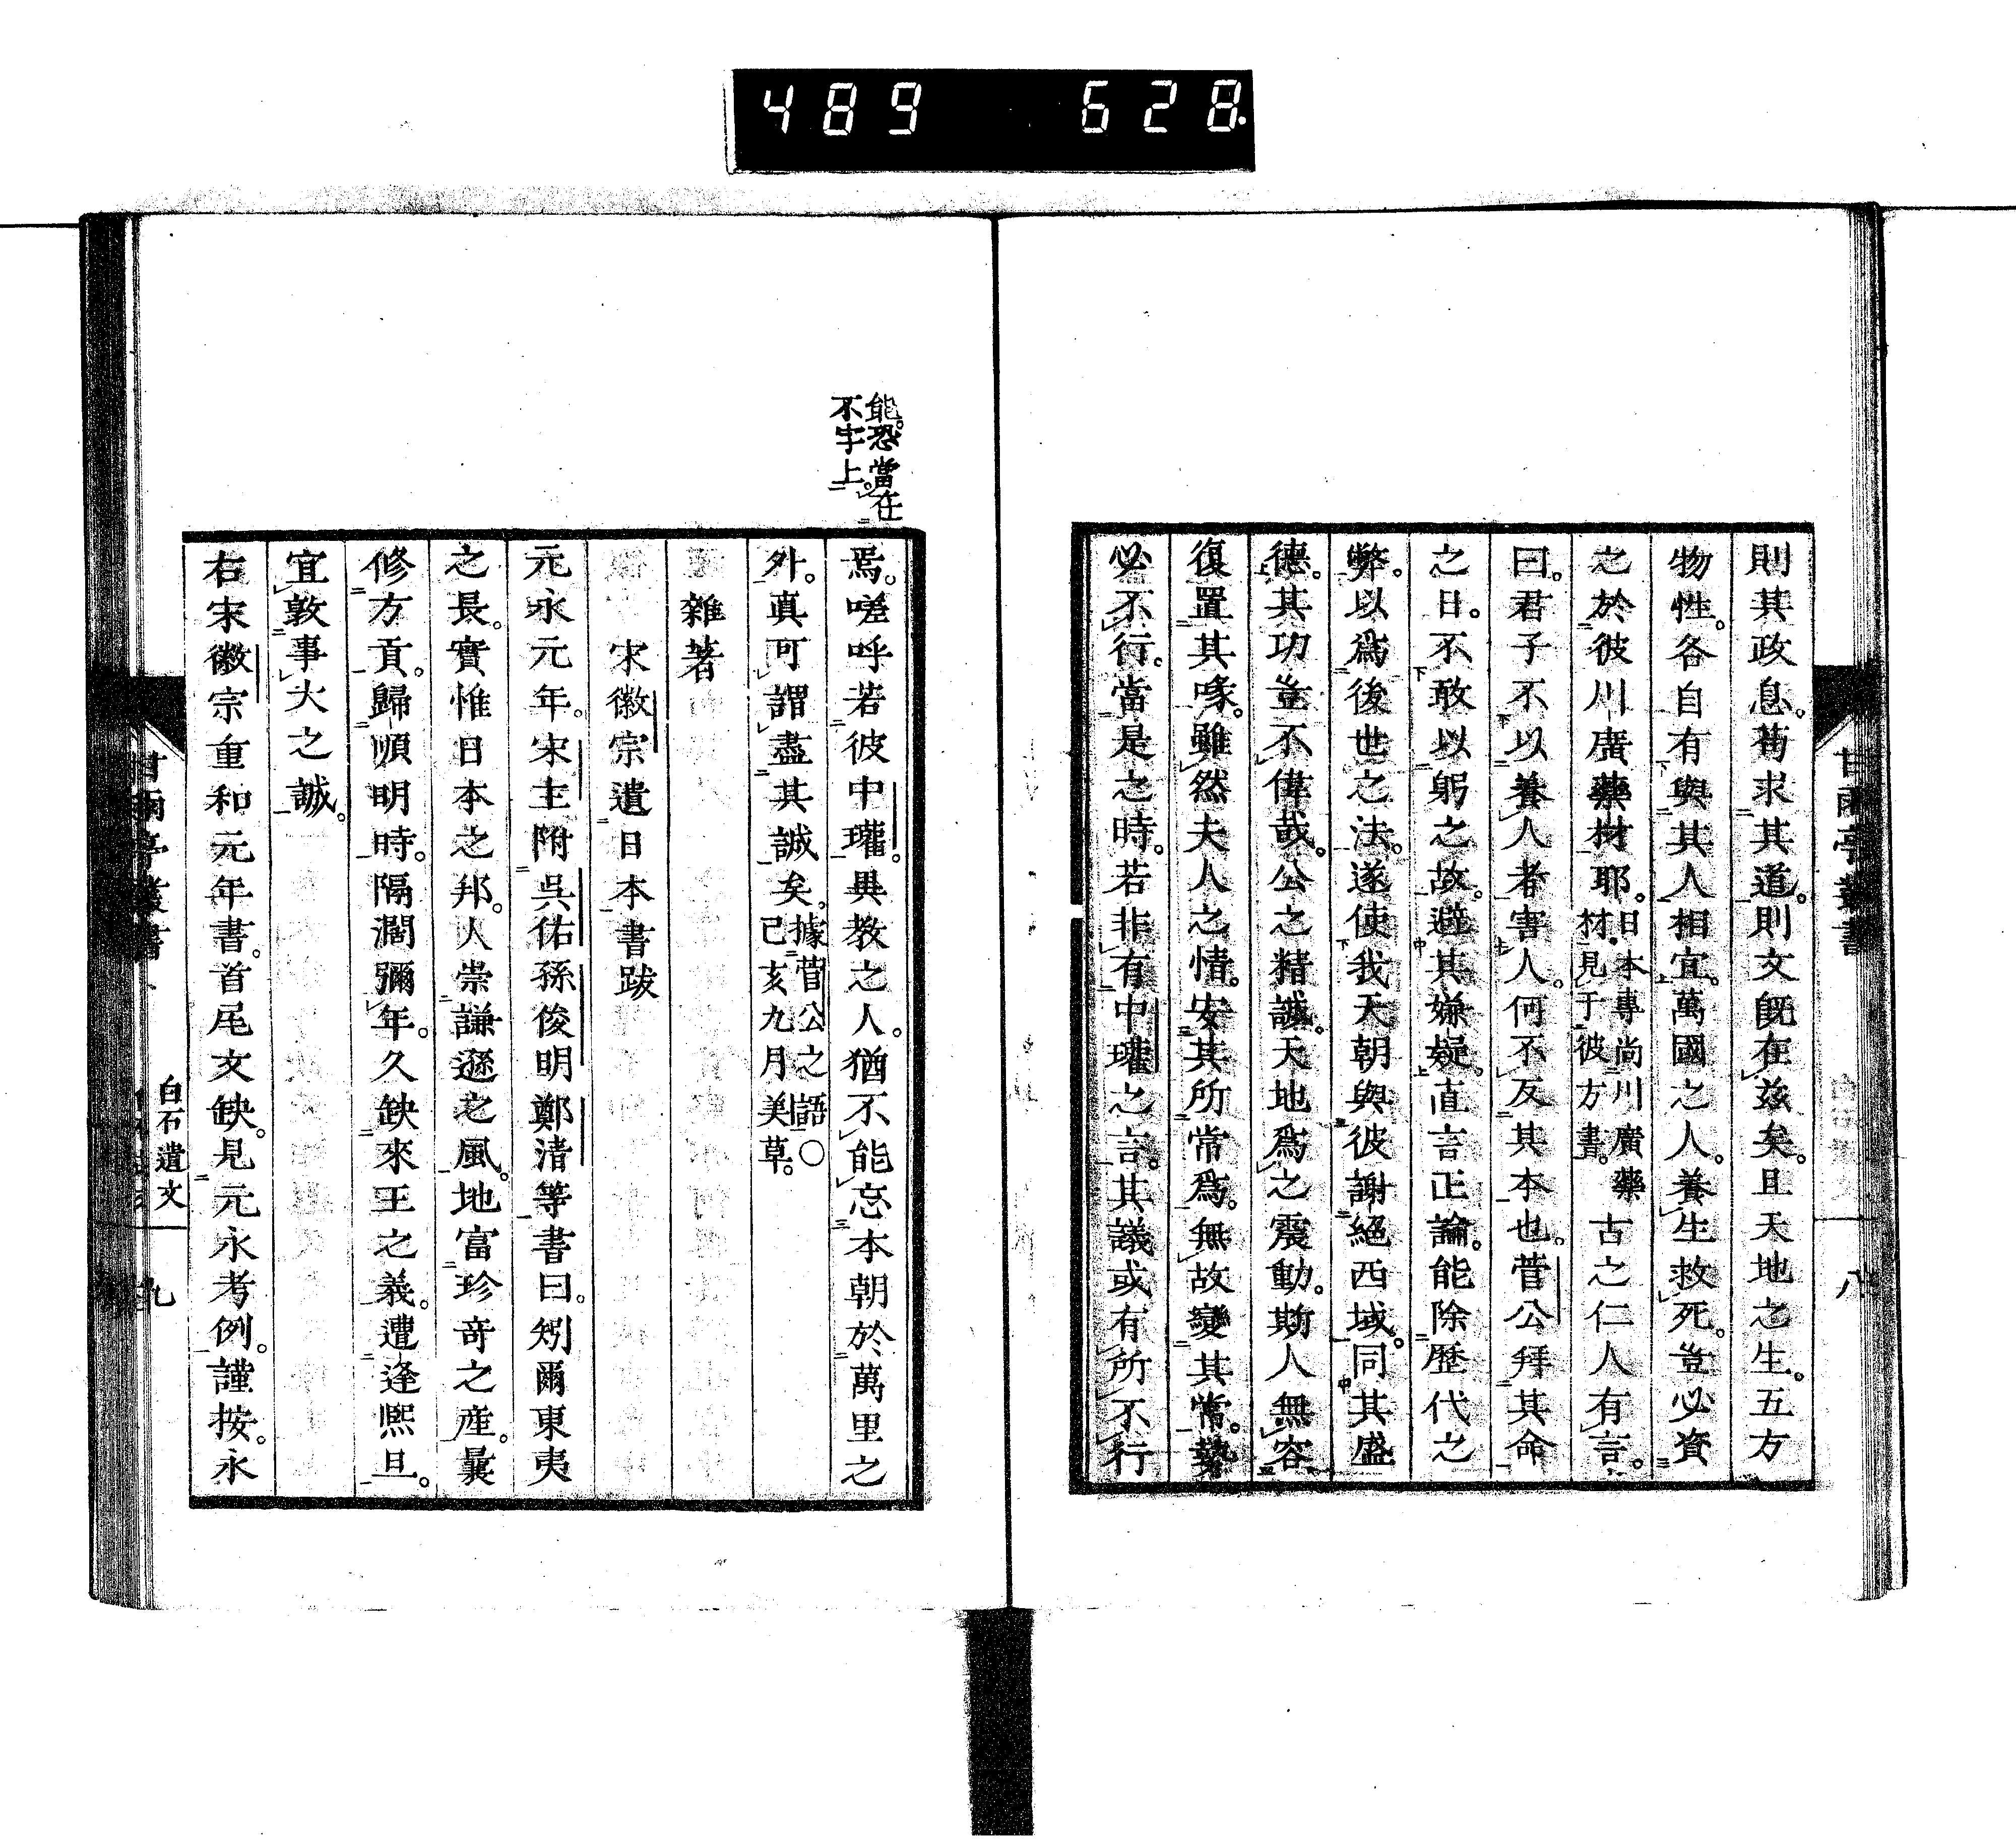 489 628
則其政息。苟求其道。則文既在茲矣。且天地之生。五方
物性。各自有與其人相宜。萬國之人。養生救死。豈必資
之於彼川廣藥材耶。日本專尚川廣藥材。見于彼方書。古之仁人有言。
曰。君子不以養人者害人。何不反其本也。菅公拜其命
之日。不敢以躬之故。避其嫌疑。直言正論。能除歷代之
弊。以爲後世之法。遂使我天朝與彼謝絕西域。同其盛
德。其功豈不偉哉。公之精誠。天地爲之震動。斯人無容
復置其喙。雖然夫人之情。安其所常爲。無故變其常。勢
必不行。當是之時。若非有中瓘之言。其議或有所不行
甘雨亭叢書
八
能。恐當在
不字上。
焉。嗟呼若彼中瓘。與教之人。猶不能忘本朝於萬里之
外。真可謂盡其誠矣。據菅公之語○己亥九月美草。
雜著
宋徽宗遺日本書跋
元永元年。宋主附吳佑孫俊明鄭清等書曰。矧爾東夷
之長。實惟日本之邦。人崇謙遜之風。地富珍奇之産。曩
修方貢。歸順明時。隔濶彌年。久缺來王之義。遭逢熙旦。
宜敦事大之誠。
右宋徽宗重和元年書。首尾文缺。見元永考例。謹按。永
甘雨亭叢書
白石遺文
九